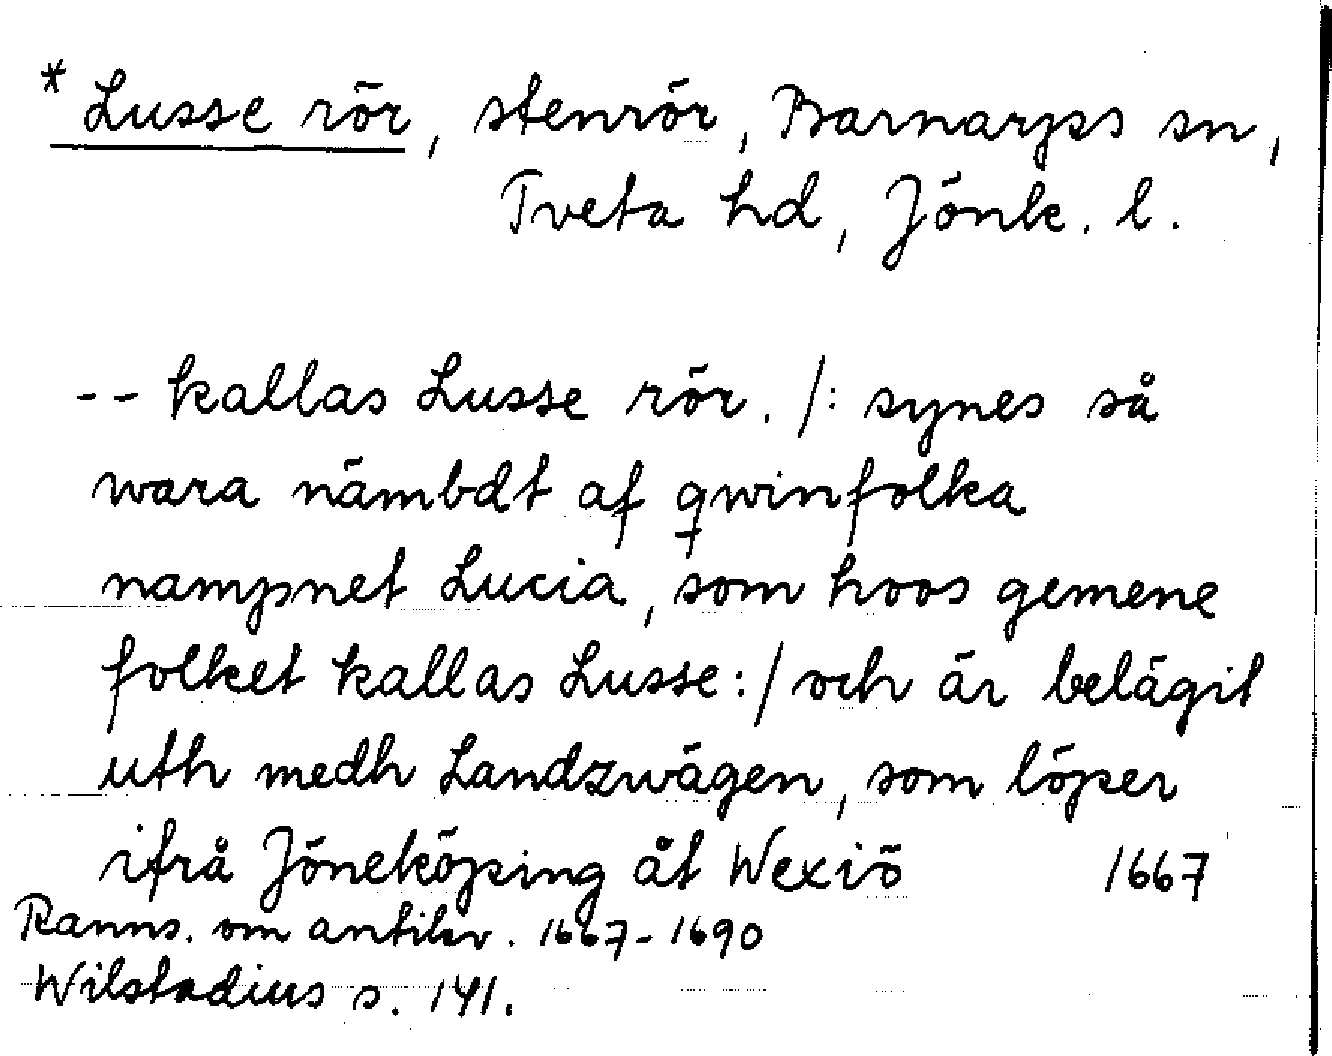 * Lusse rör, stenrör, Barnarps sn,
Tveta hd, Jönk. l.
-- kallas Lusse rör. /: synes så
wara nämbdt af qwinfolka
nampnet Lucia, som hoos gemene
folket kallas Lusse :/ och är belägit
uth medh Landzwägen, som löper
ifrå Jöneköping åt Wexiö 1667
Ranns. om antikv. 1667-1690
Wilstadius s. 141.